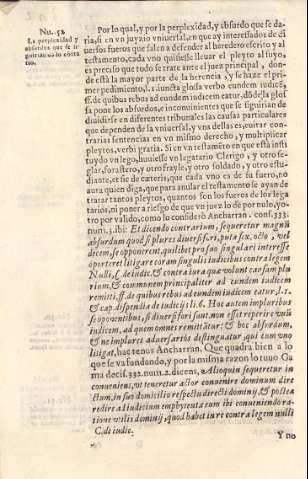 Nu. 52.
La perplexidad, y
absurdos que se si-
guirian de lo contra
rio.
Por lo qual, y por la perplexidad, y absurdo que se da-
ria, si en vn juyzio vniuersal, en que ay interessados de di
uersos fueros que salen a defender al heredero escrito y al
testamento, cada vno quisiesse lleuar el pleyto al suyo,
es preciso que todo se trate ante el juez principal, don-
de està la mayor parte de la herencia, y se haze el pri-
mer pedimiento, l. 1. iuncta glossa verbo eundem iudicē,
ff. de quibus rebus ad eundem iudicem eatur, dōde la glos
sa pone los absurdos, e inconuenientes que se siguirian de
diuidirse en diferentes tribunales las causas particulares
que dependen de la vniuersal, y vna della es, euitar con-
trarias sentencias en vn mismo derecho, y multiplicar
pleytos, verbi gratia. Si en vn testamēto en que està insti
tuydo vn lego, huuiesse vn legatario Clerigo, y otro se-
glar, forastero, y otro frayle, y otro soldado, y otro estu-
diante, et sic de cæteris, que cada vno es de su fuero, no
aura quien diga, que para anular el testamento se ayan de
tratar tantos pleytos, quantos son los fueros de los lega
tarios, ni poner a riesgo de que vn juez lo dè por nulo, y o-
tro por valido, como lo considerò Ancharrano, cons. 333.
num. 3. ibi: Et dicendo contrarium, sequeretur magnũ
absurdum quod si plures diuersi fori, puta sex. octo, vel
decem, se opponerent, quilibet pro suo singulari interesse
oporteret litigare coram singulis iudicibus contra legem
Nulli, C. de iudic. & contra iura quæ volunt causam plu
rium, & communem principaliter ad eundem iudicem
remitti, ff. de quibus rebus ad eundem iudicem eatur, l. 1.
& cap. dispendia de iudicijs li. 6. Hoc autem in pluribus
se opponentibus, si diuersi fori sunt, non esset reperire vnũ
iudicem, ad quem omnes remittātur: & hoc absurdum,
& ne implures aduersarios distinguatur, qui cum vno
litigat, hactenus Ancharran. Que quadra bien a lo
que se va fundando, y por la misma razon lo tuuo Ga
ma decis. 332. num. 2. dicens, Alioquin sequeretur in
conueniens, vt teneretur actor conuenire dominum dire
ctum, in suo domicilio respectu directi dominij, & postea
redire ad iudicium emphyteuta eum ibi conueniendo, ra
tione vtilis dominij, quod habet in re contra legem nulli
C. de iudic.
Y no